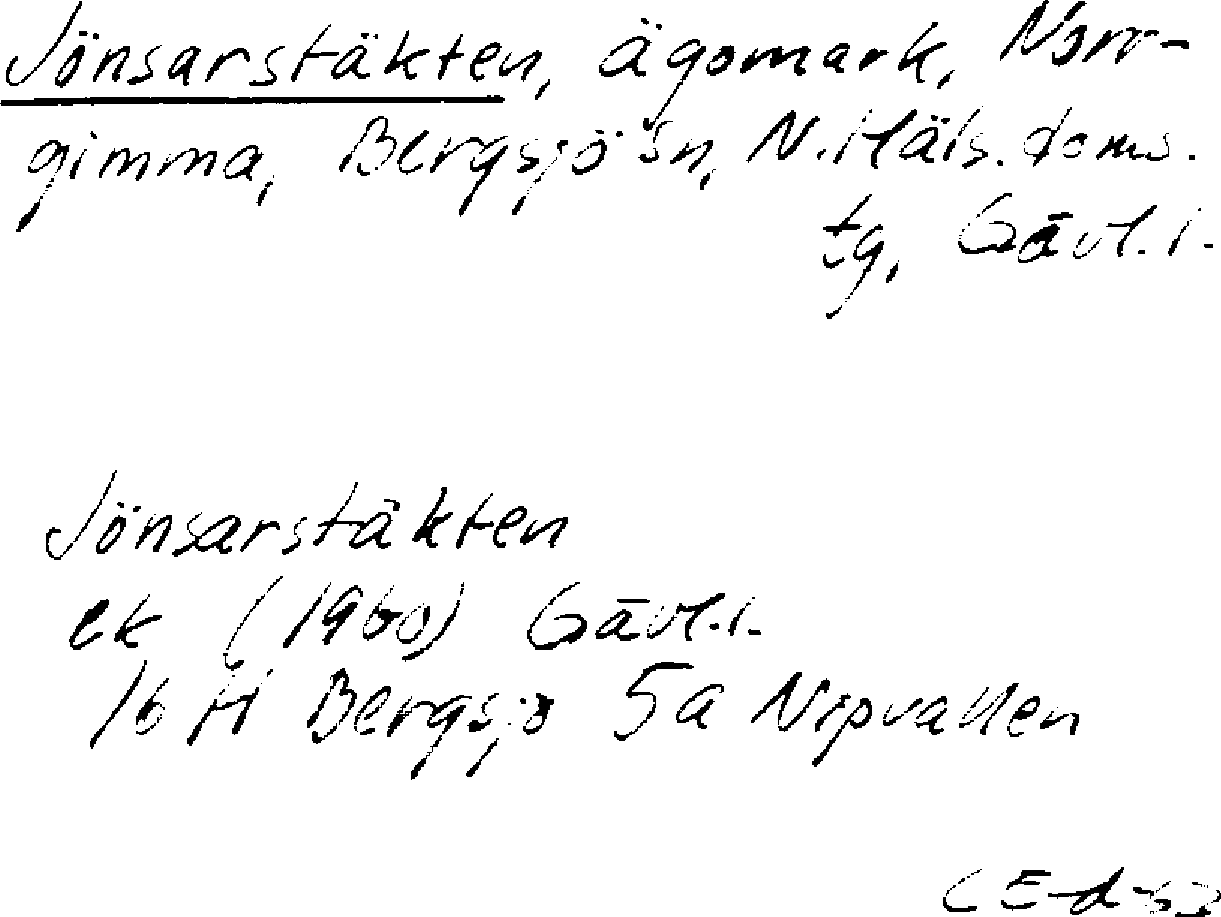 Jönsarstäkten, ägomark, Norr-
gimma, Bergsjö sn, N. Häls. doms.
tg, Gävl. l.
Jönsarstäkten
ek (1960) Gävl. l.
16 H Bergsjö 5a Nipvallen